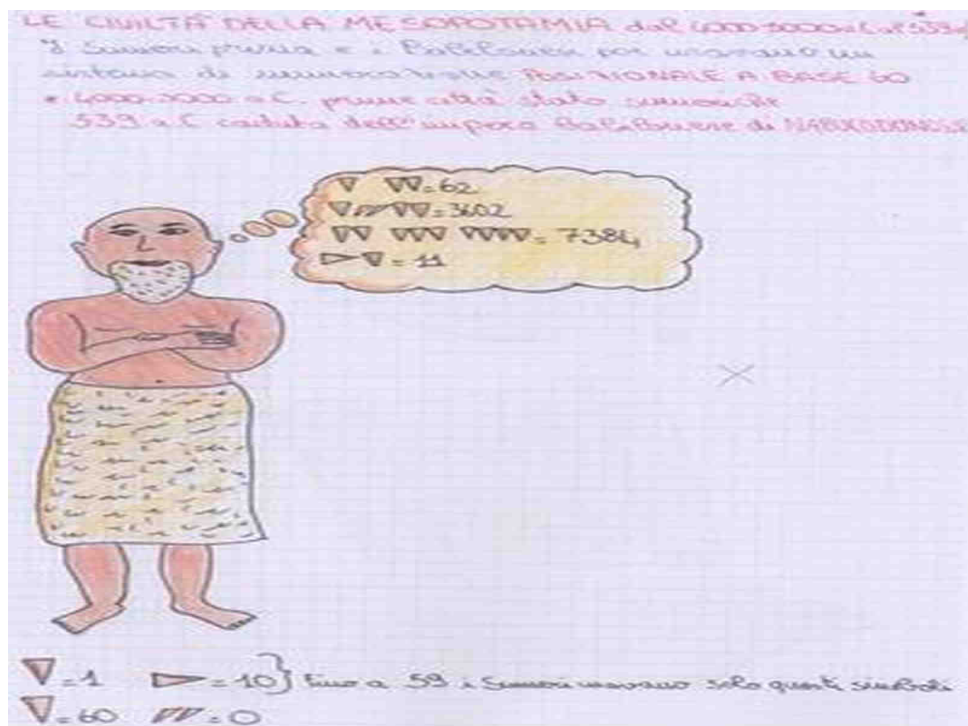 LE CIVILTÀ DELLA MESOPOTAMIA dal 4000-3000 a.C. al 539
I Sumeri prima e i Babilonesi poi usavano un
sistema di numerazione POSIZIONALE A BASE 60
• 4000-3000 a.C. prime città stato sumeriche
539 a.C. caduta dell'impero Babilonese di
= 62
= 3602
= 7384
= 11
= 1 = 10} fino a 59 i Sumeri usavano solo questi simboli
= 60 = 0